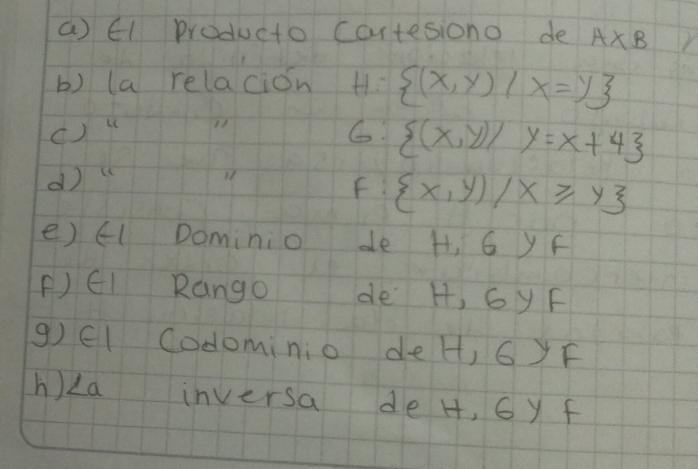 a) El Producto Cartesiono de AXB
b) la relación H: {(X,Y) / X=Y}
c) " " G: {(X,Y)/ Y=X+4}
d) " " F: {X,Y) / X ≥ Y}
e) El Dominio de H, G y F
f) El Rango de H, G y F
g) El Codominio de H, G y F
h) La inversa de H, G y F